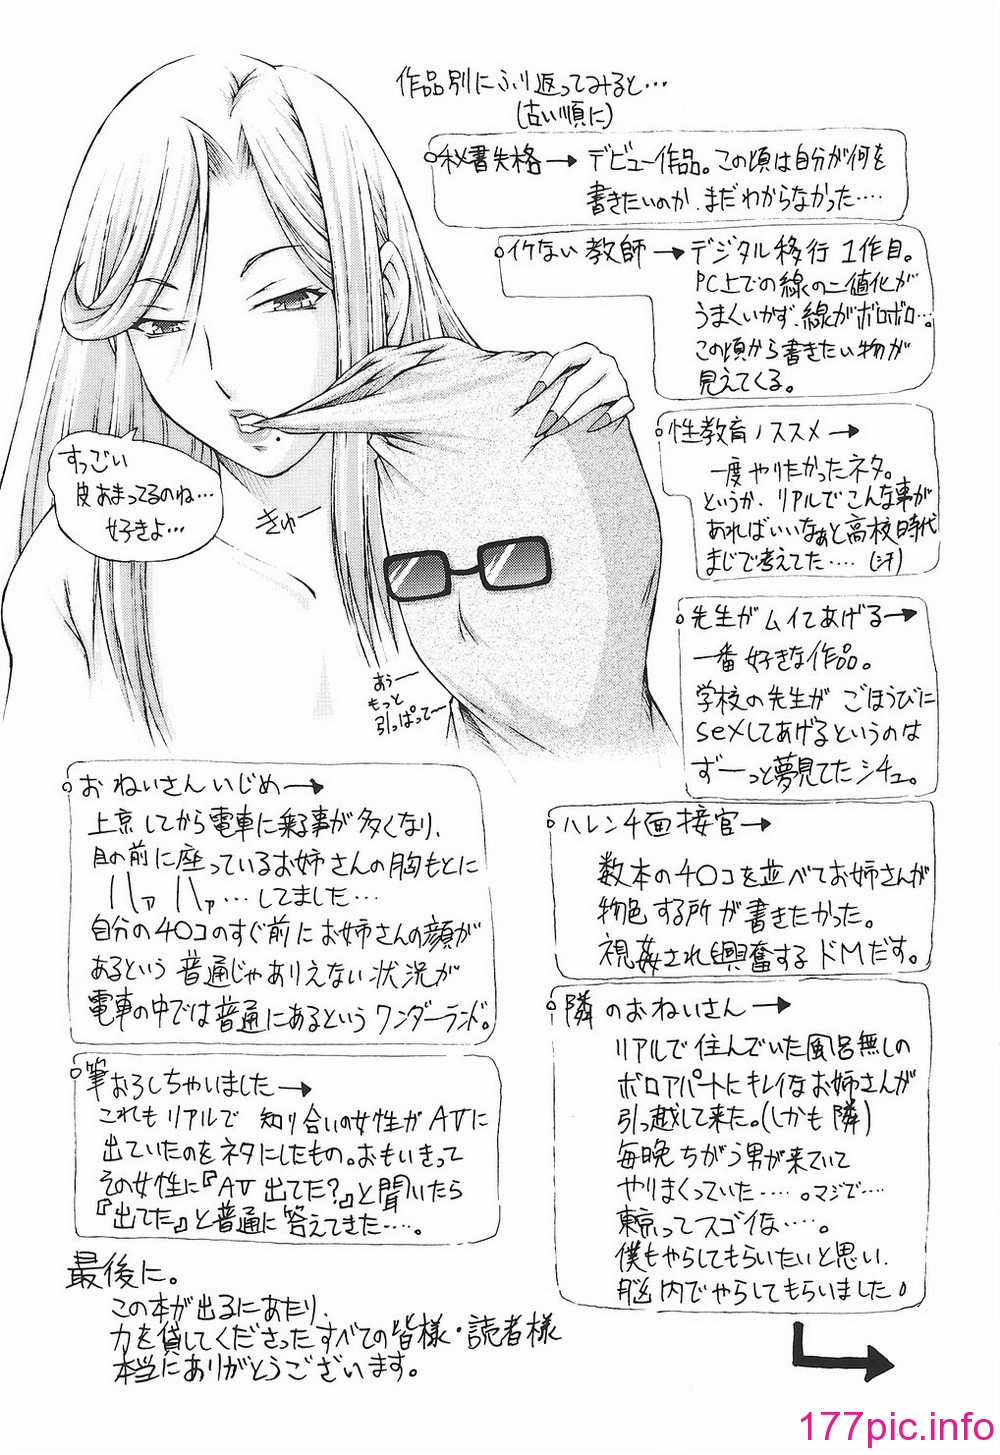 作品別にふり返ってみると…
(古い順に)
秘書失格→デビュー作品。この頃は自分が何を
書きたいのか、まだわからなかった‥‥
イケない教師→デジタル移行1作目。
PC上での線の二値化が
うまくいかず、線がボロボロ…。
この頃から書きたい物が
見えてくる。
性教育ノススメ→
一度やりたかったネタ。
というか、リアルでこんな事が
あればいいなぁと高校時代
まじで考えてた‥‥(汗)
先生がムイてあげる→
一番好きな作品。
学校の先生が ごほうびに
sexしてあげるというのは
ずーっと夢見てたシチュ。
すっごい
皮あまってるのね…
好きよ…
きゅー
あぅー
もっと
引っぱって〜
おねいさんいじめ→
上京してから電車に乗る事が多くなり、
目の前に座っているお姉さんの胸もとに
ハァハァ…してました…
自分のチ○コのすぐ前にお姉さんの顔が
あるという普通じゃありえない状況が
電車の中では普通にあるというワンダーランド。
ハレンチ面接官→
数本のチ○コを並べてお姉さんが
物色する所が書きたかった。
視姦され興奮するドMだす。
筆おろしちゃいました→
これもリアルで 知り合いの女性がAVに
出ていたのをネタにしたもの。おもいきって
その女性に『AV出てた?』と聞いたら
『出てた』と普通に答えてきた‥‥。
隣のおねいさん→
リアルで住んでいた風呂無しの
ボロアパートにキレイなお姉さんが
引っ越して来た。(しかも隣)
毎晩ちがう男が来ていて
やりまくっていた‥‥。マジで‥‥
東京ってスゴイな‥‥。
僕もやらしてもらいたいと思い、
脳内でやらしてもらいました。
最後に。
この本が出るにあたり、
力を貸してくださったすべての皆様・読者様
本当にありがとうございます。
177pic.info